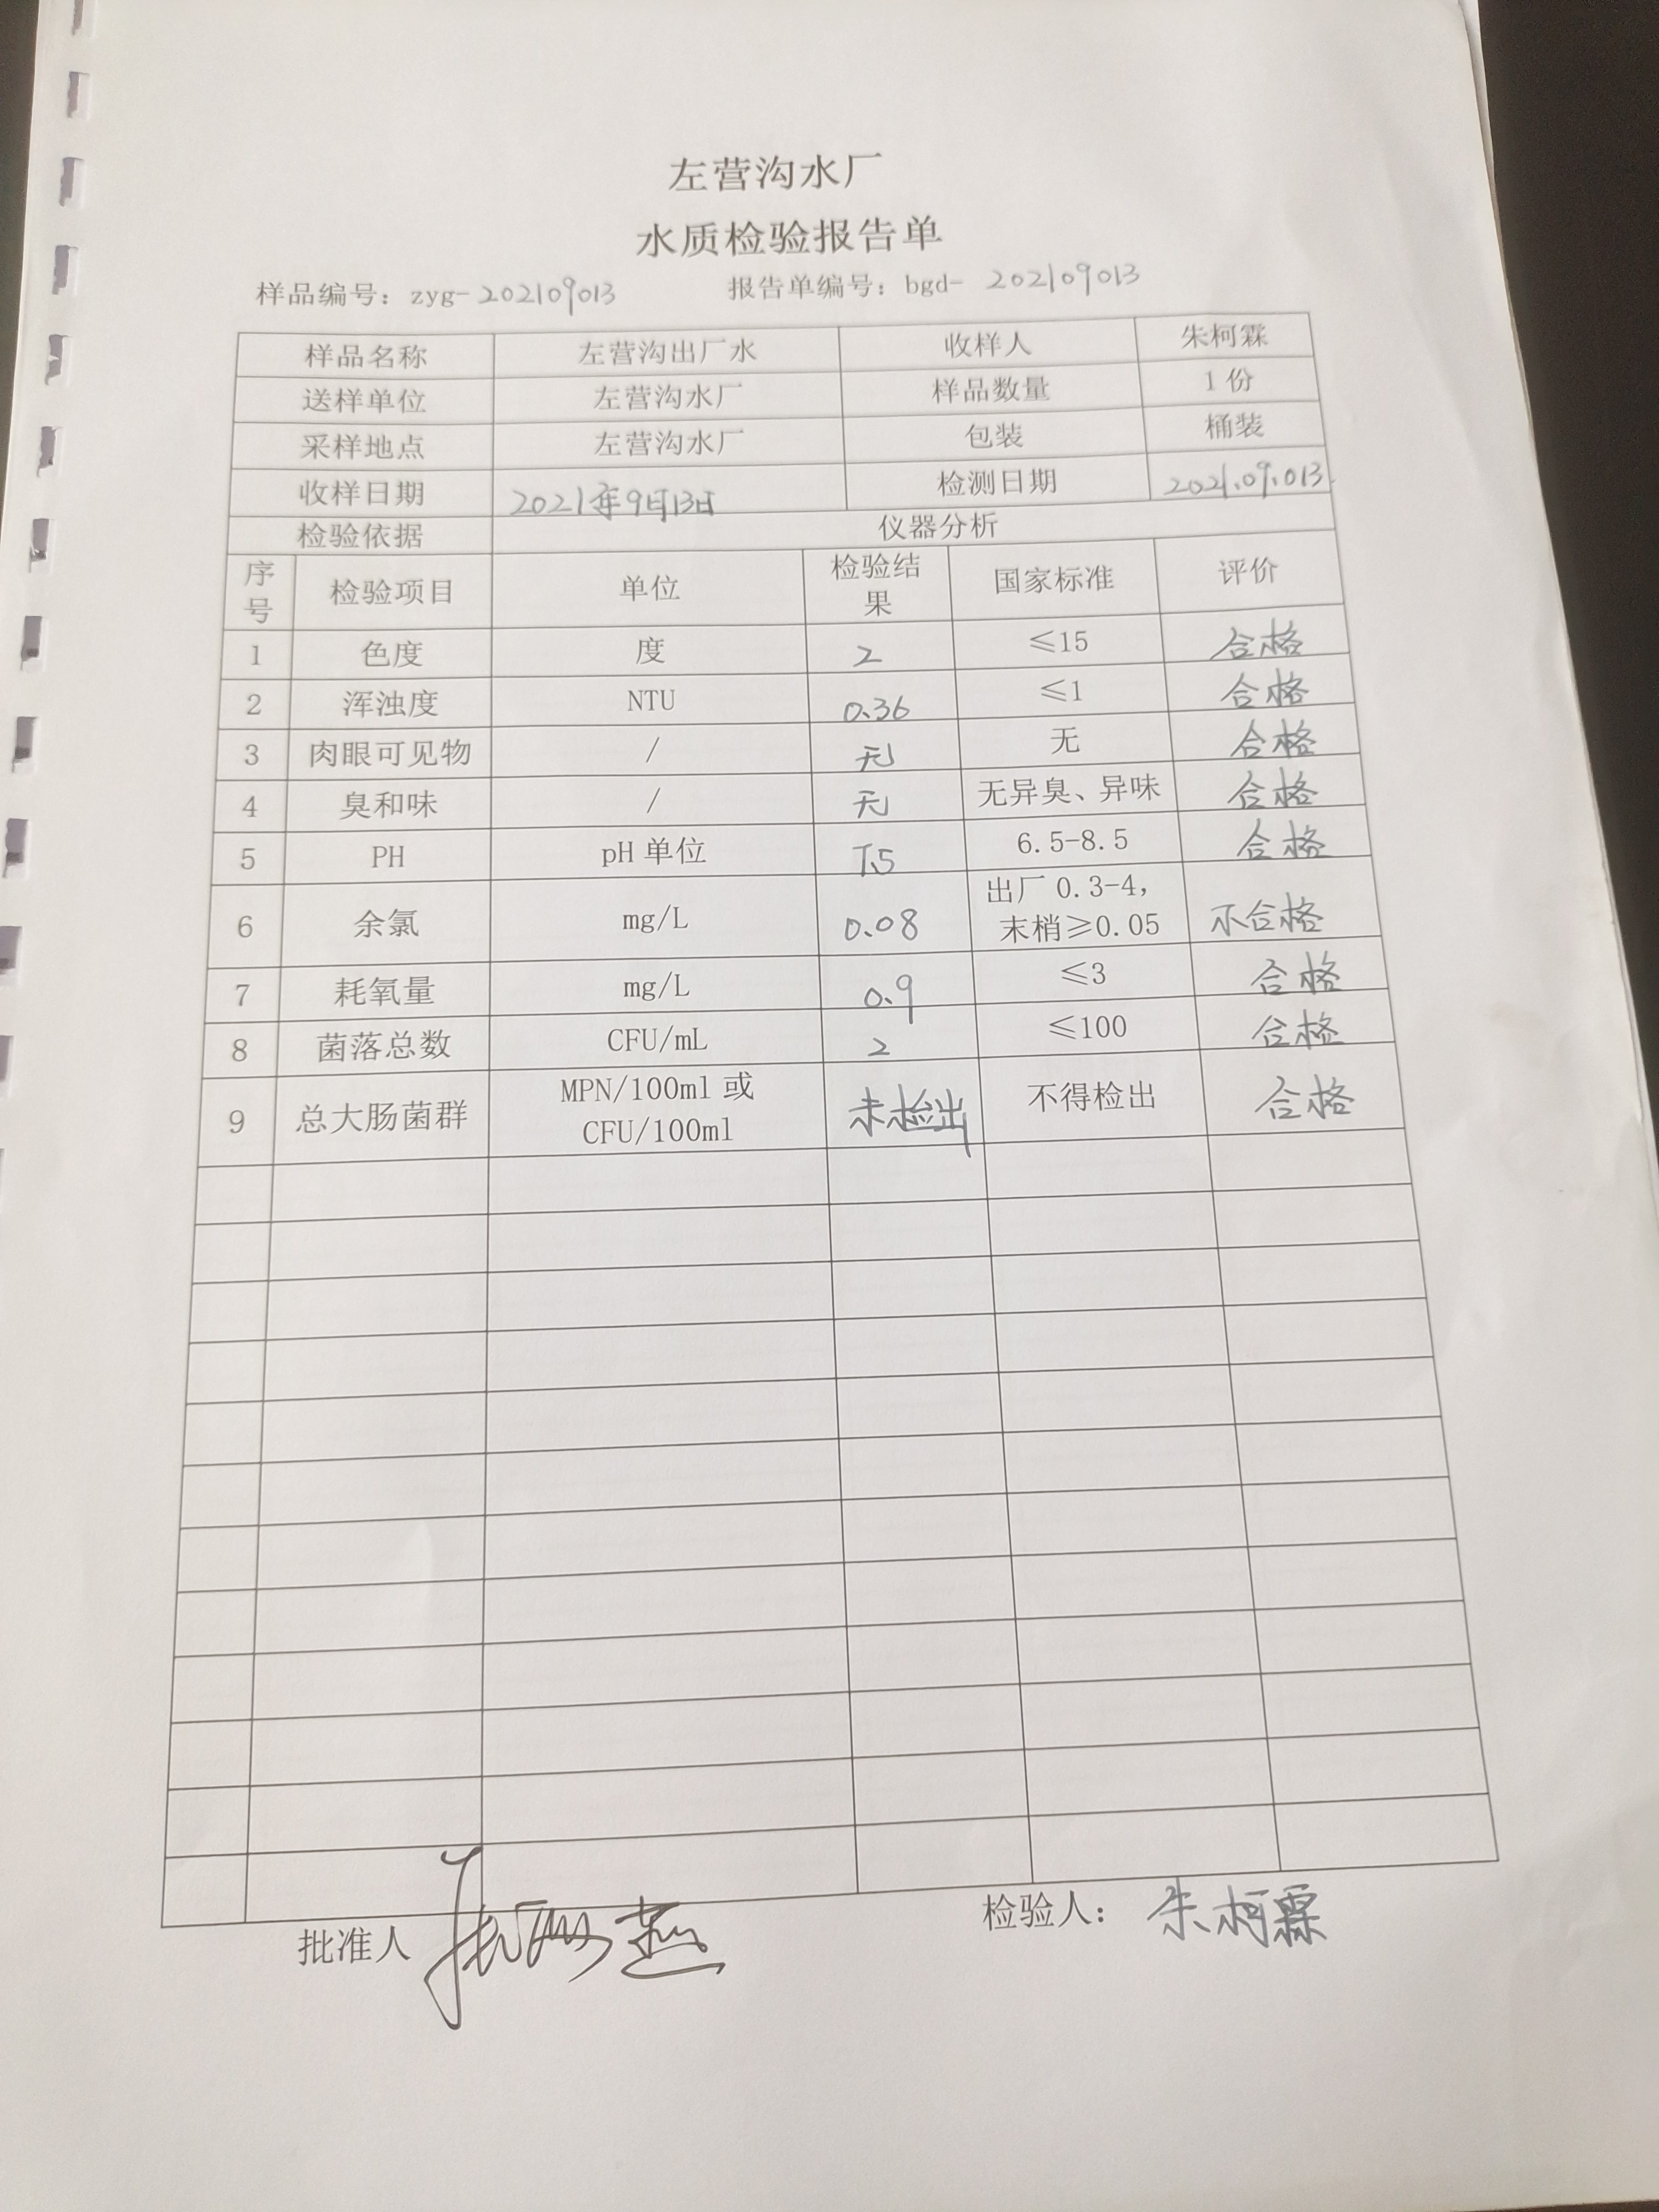 左营沟水厂
水质检验报告单
样品编号：zyg-202109013 报告单编号：bgd-202109013
样品名称 左营沟出厂水 收样人 朱柯霖
送样单位 左营沟水厂 样品数量 1份
采样地点 左营沟水厂 包装 桶装
收样日期 2021年9月13日 检测日期 2021.09.013
检验依据 仪器分析
序号 检验项目 单位 检验结果 国家标准 评价
1 色度 度 2 ≤15 合格
2 浑浊度 NTU 0.36 ≤1 合格
3 肉眼可见物 / 无 无 合格
4 臭和味 / 无 无异臭、异味 合格
5 PH pH单位 7.5 6.5-8.5 合格
6 余氯 mg/L 0.08 出厂 0.3-4，末梢≥0.05 不合格
7 耗氧量 mg/L 0.9 ≤3 合格
8 菌落总数 CFU/mL 2 ≤100 合格
9 总大肠菌群 MPN/100ml或CFU/100ml 未检出 不得检出 合格
批准人 检验人：朱柯霖